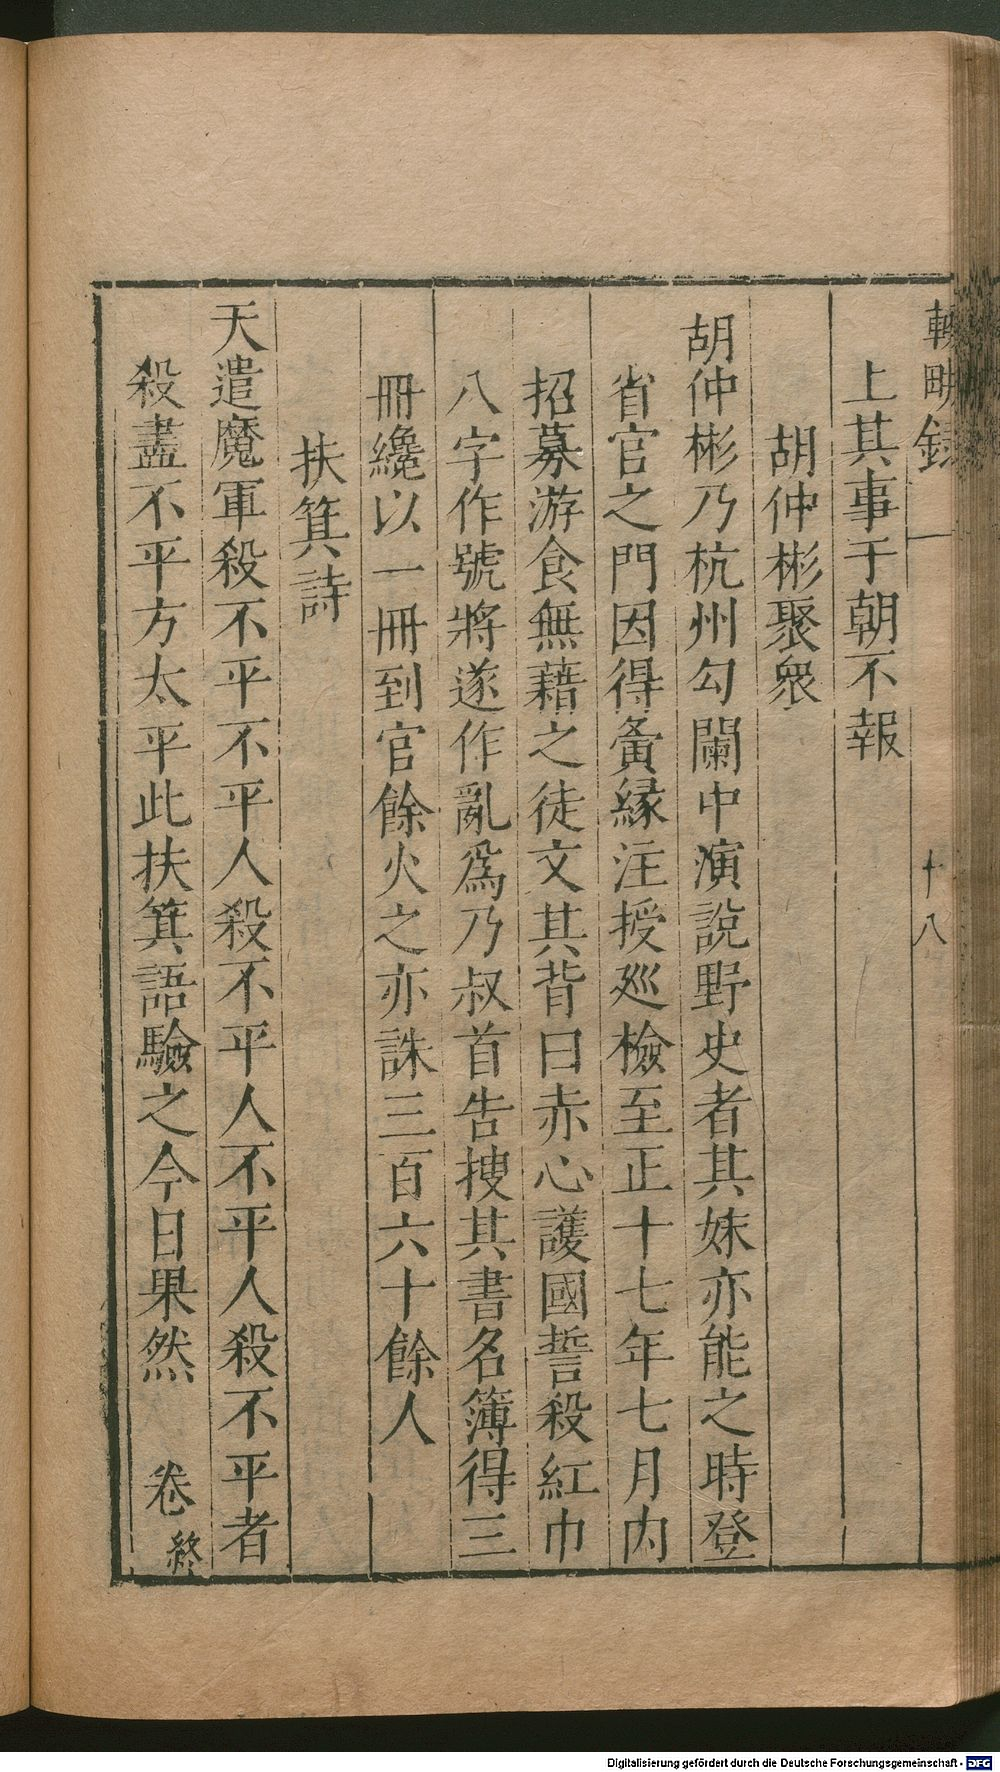 輟畊錄 一 十八
上其事于朝不報
胡仲彬聚衆
胡仲彬乃杭州勾闌中演說野史者其妹亦能之時登
省官之門因得夤緣注授巡檢至正十七年七月內
招募游食無藉之徒文其背曰赤心護國誓殺紅巾
八字作號將遂作亂爲乃叔首告搜其書名簿得三
冊纔以一冊到官餘火之亦誅三百六十餘人
扶箕詩
天遣魔軍殺不平不平人殺不平人不平人殺不平者
殺盡不平方太平此扶箕語驗之今日果然 卷終
Digitalisierung gefördert durch die Deutsche Forschungsgemeinschaft - DFG